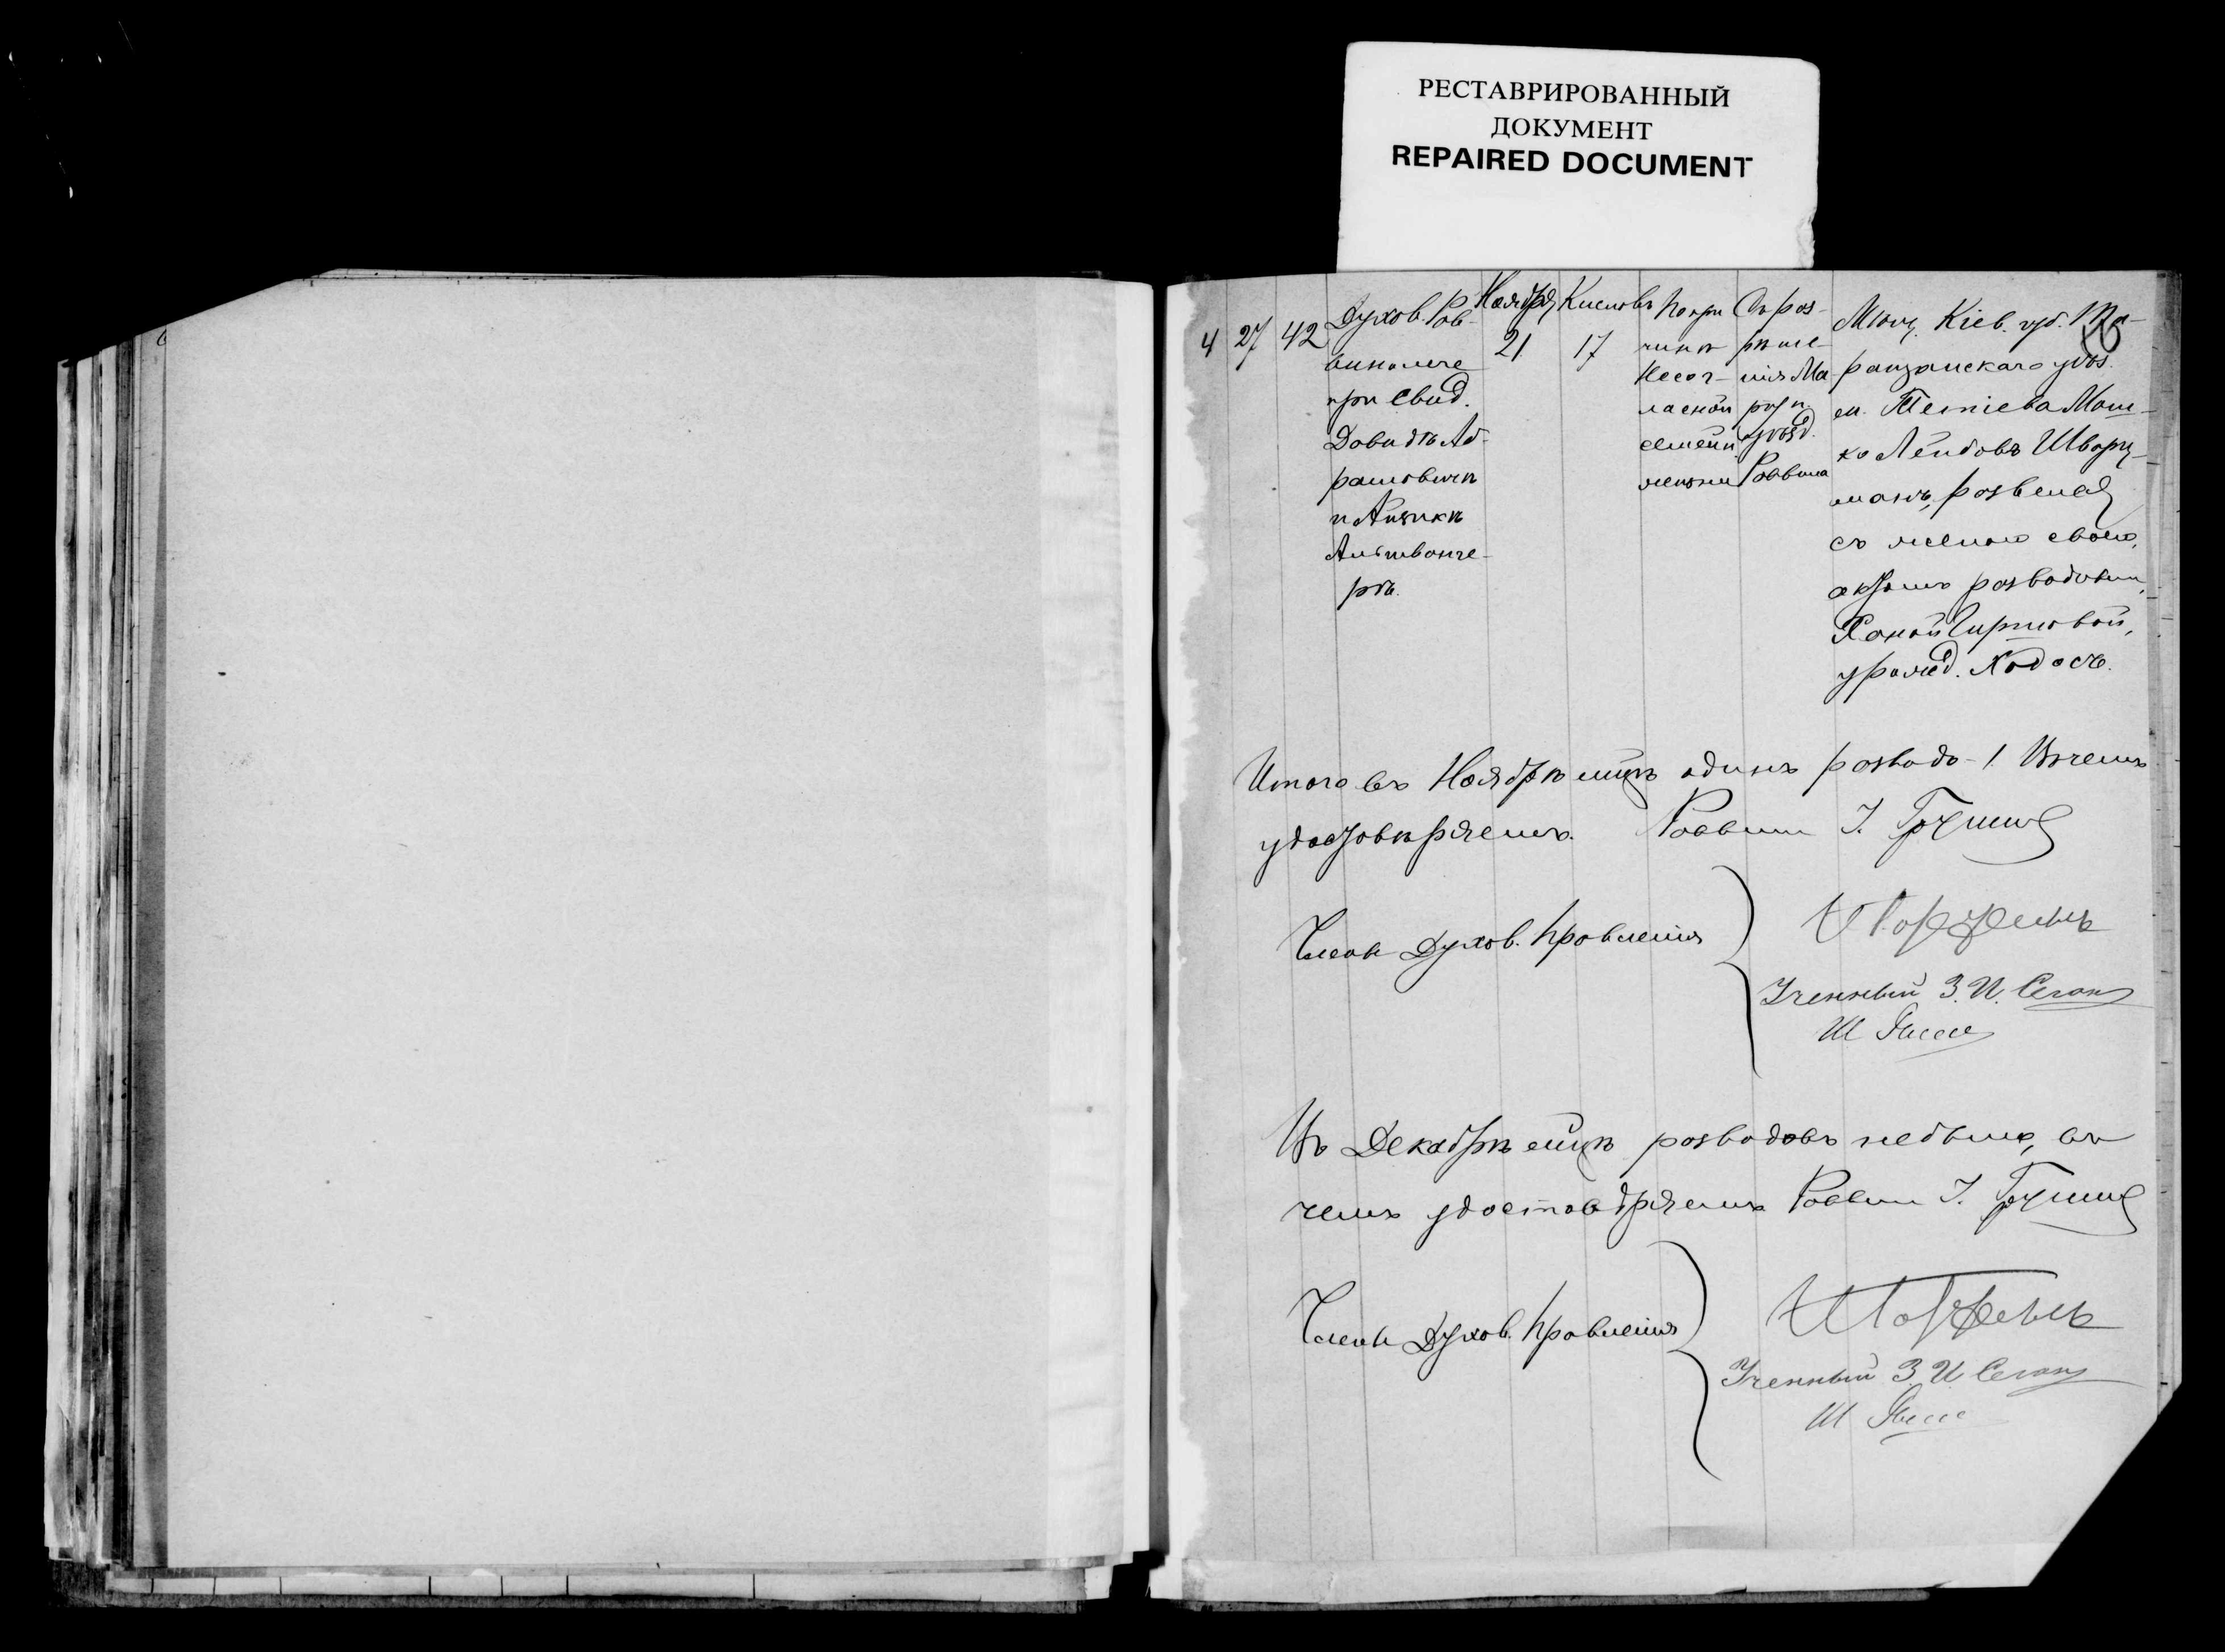 РЕСТАВРИРОВАННЫЙ
ДОКУМЕНТ
REPAIRED DOCUMENT
4 27 42 Духов. Рав-
виномъ
при свид.
Давидѣ Аб-
рамовичѣ
и
рѣ.
Ноября
21
Кислевъ
17
По при
чинѣ
несог-
ласной
семейн.
жизни
Съ раз-
рѣше-
нія Ма
рiуп.
уѣзд.
Раввина
Мѣщ. Кіев. губ. Та-
ращанскаго уѣз.
м. Тетіева Мош-
ко Лейбовъ Шварц-
манъ, развелся
съ женою своею,
актомъ разводнымъ,
Ханой Гиршовой,
урожд. Ходосъ.
Итого въ Ноябрѣ мцѣ одинъ разводъ - 1. Въ чемъ
удостовѣряемъ. Раввинъ І.
Члены Духов. Правленія
Ученный З. И. Сеган
Ш
Въ Декабрѣ мцѣ разводовъ небыло, въ
чемъ удостовѣряемъ Раввинъ І.
Члены Духов. Правленія
Ученный З. И. Сеган
Ш